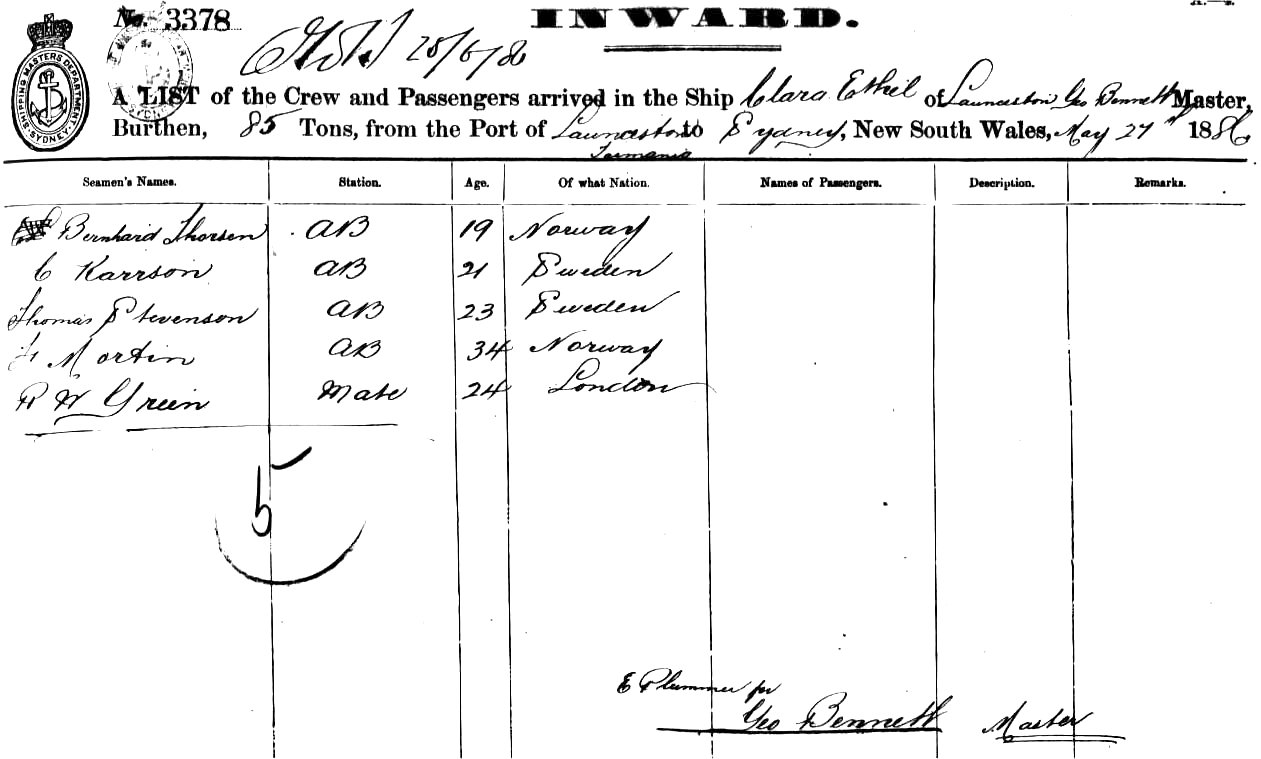 No. 3378
INWARD.
28/5/86
SHIPPING MASTERS DEPARTMENT SYDNEY
A LIST of the Crew and Passengers arrived in the Ship Clara Ethel of Launceston Geo Bennett Master,
Burthen, 85 Tons, from the Port of Launceston to Sydney, New South Wales, May 27th 1886
Tasmania
Seamen's Names. Station. Age. Of what Nation. Names of Passengers. Description. Remarks.
Bernhard Thorsen AB 19 Norway
C Karrson AB 21 Sweden
Thomas Stevenson AB 23 Sweden
Mortin AB 34 Norway
R W Green Mate 24 London
5
E Plummer for
Geo Bennett Master